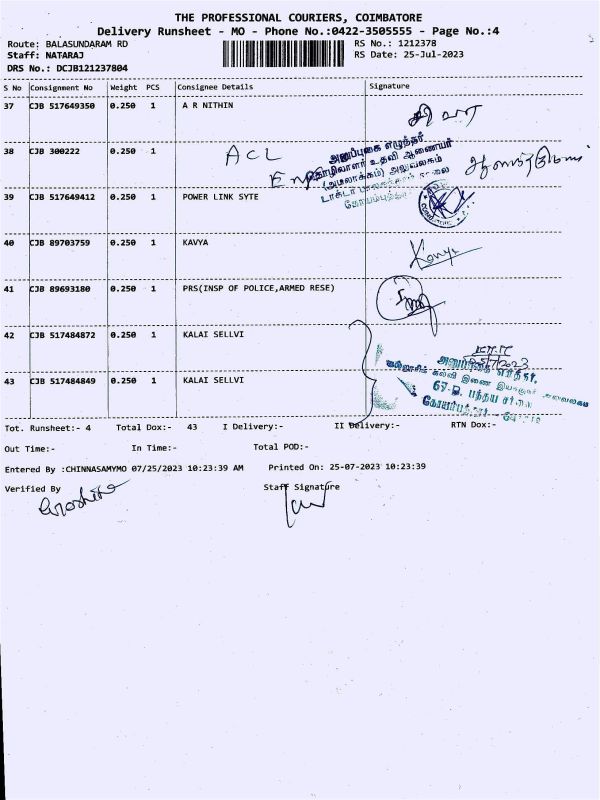 THE PROFESSIONAL COURIERS, COIMBATORE
Delivery Runsheet - MO - Phone No.:0422-3505555 - Page No.:4
Route: BALASUNDARAM RD
RS No.: 1212378
Staff: NATARAJ
RS Date: 25-Jul-2023
DRS No.: DCJB121237804
S No Consignment No Weight PCS Consignee Details Signature
37 CJB 517649350 0.250 1 A R NITHIN
38 CJB 300222 0.250 1 ACL
அனுப்புகை எழுத்தர்
தொழிலாளர் உதவி ஆணையர்
(அமலாக்கம்) அலுவலகம்
39 CJB 517649412 0.250 1 POWER LINK SYTE
40 CJB 89703759 0.250 1 KAVYA
41 CJB 89693180 0.250 1 PRS(INSP OF POLICE,ARMED RESE)
42 CJB 517484872 0.250 1 KALAI SELLVI
43 CJB 517484849 0.250 1 KALAI SELLVI
Tot. Runsheet:- 4 Total Dox:- 43 I Delivery:- II Delivery:- RTN Dox:-
Out Time:- In Time:- Total POD:-
Entered By :CHINNASAMYMO 07/25/2023 10:23:39 AM Printed On: 25-07-2023 10:23:39
Verified By Staff Signature